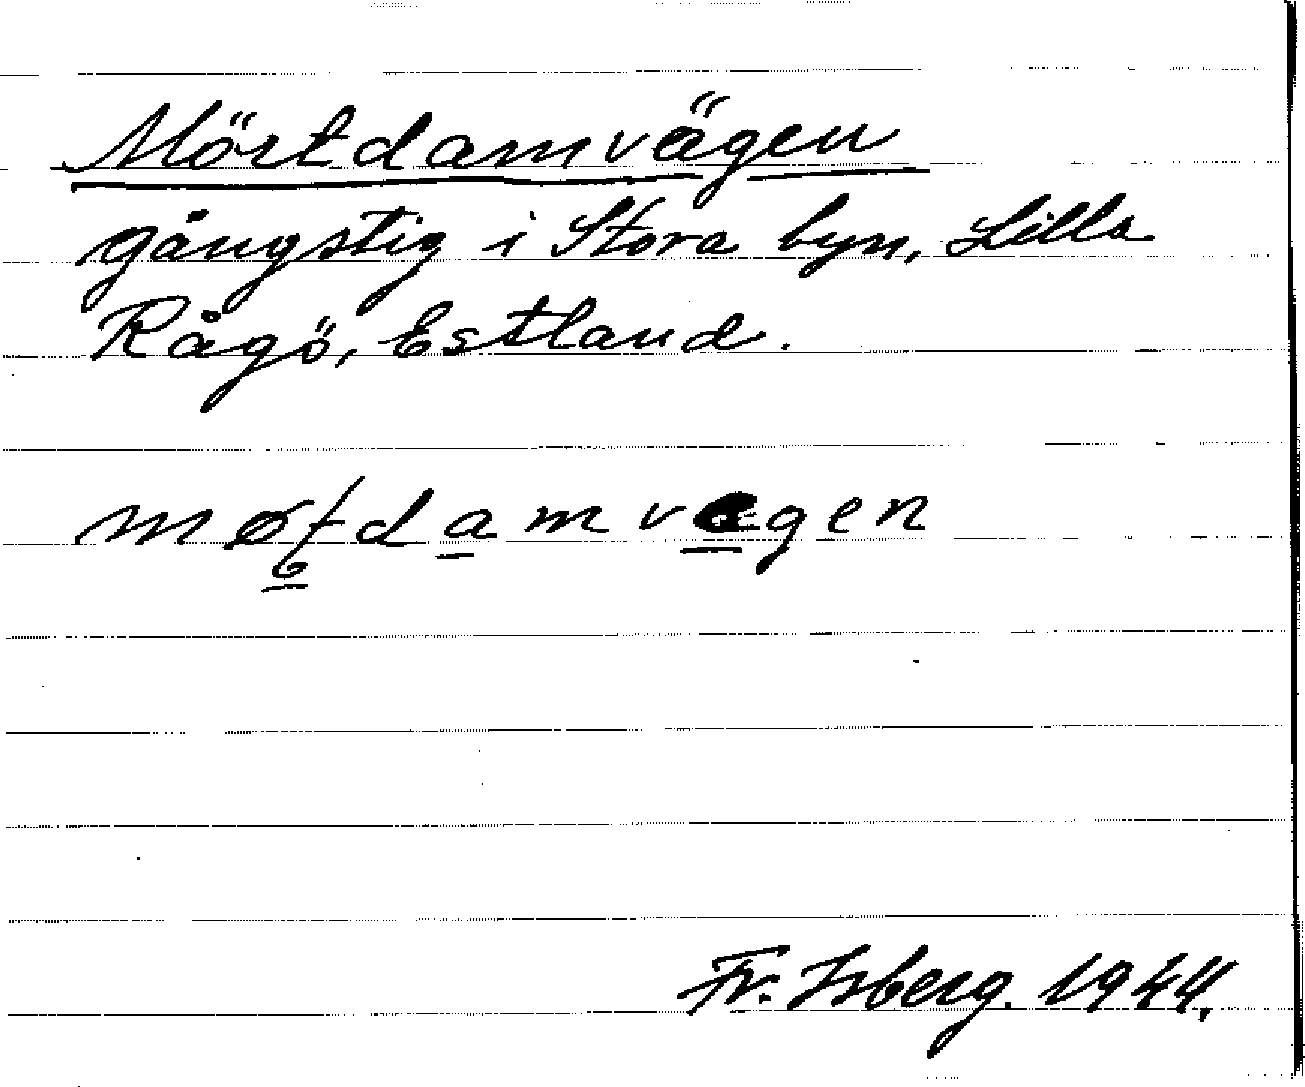 Mörtdamvägen
gångstig i Stora byn, Lilla
Rågö, Estland.
Fr. Isberg. 1944.